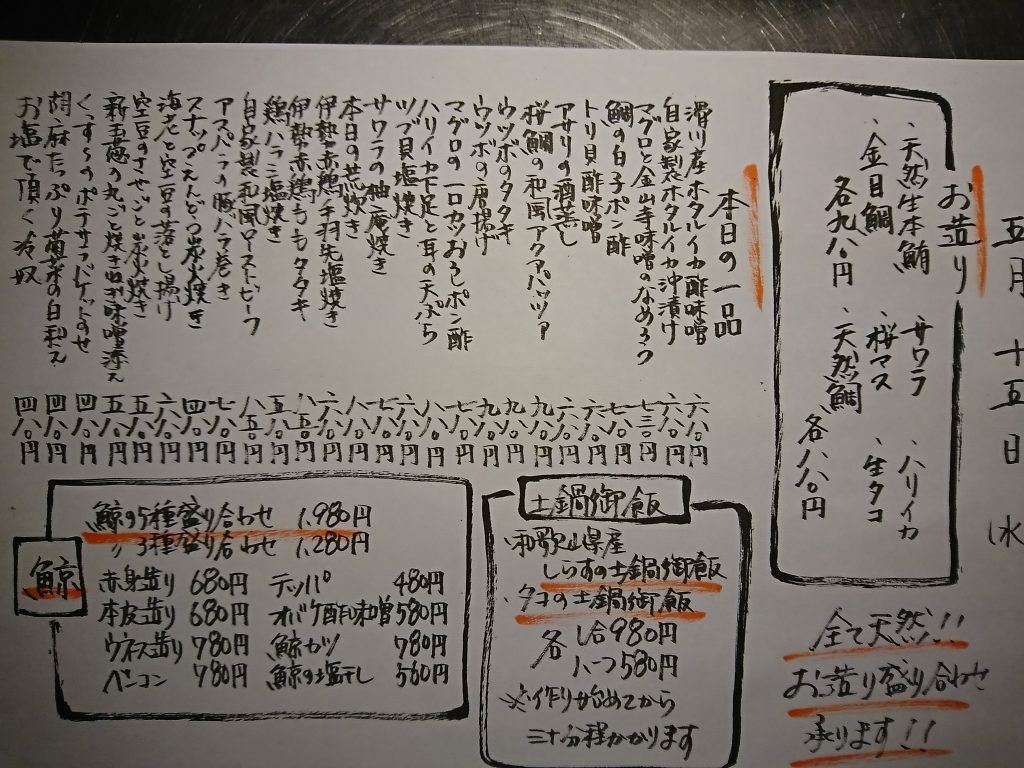 五月十五日(水
お造り
・天然生本鮪
・金目鯛
各九八〇円
・サワラ
・桜マス
・天然鯛
・ハリイカ
・生タコ
各八八〇円
全て天然!!
お造り盛り合わせ
承ります!!
本日の一品
滑川産ホタルイカ酢味噌 六八〇円
自家製ホタルイカ沖漬け 六八〇円
マグロと金山寺味噌のなめろう 七三〇円
鯛の白子ポン酢 七八〇円
トリ貝酢味噌 六八〇円
アサリの酒蒸し 六八〇円
桜鯛の和風アクアパッツァ 九八〇円
ウツボのタタキ 九八〇円
ウツボの唐揚げ 九八〇円
マグロの一口カツおろしポン酢 七八〇円
ハリイカ下足と耳の天ぷら 八八〇円
ツブ貝塩焼き 六八〇円
サワラの柚庵焼き 七八〇円
本日の荒炊き 八八〇円
伊勢赤鶏手羽先塩焼き 六八〇円
伊勢赤鶏ももタタキ 八五〇円
鶏ハラミ塩焼き 五八〇円
自家製和風ローストビーフ 八五〇円
アスパラの豚バラ巻き 七八〇円
スナップえんどう炭火焼き 四八〇円
海老と空豆の落とし揚げ 六八〇円
空豆のさやごと炭火焼き 五八〇円
新玉葱の丸ごと焼き 味噌添え 五八〇円
くっすんのポテサラバゲットのせ 四八〇円
胡麻たっぷり菊菜の白和え 四八〇円
お塩で頂く冷奴 四八〇円
土鍋御飯
・和歌山県産
しらすの土鍋御飯
・タコの土鍋御飯
各 一合980円
ハーフ580円
※作り始めてから
三十分程かかります
鯨
鯨の5種盛り合わせ 1,980円
〃3種盛り合わせ 1,280円
赤身造り 680円 テッパ 480円
本皮造り 680円 オバケ酢味噌 580円
ウネス造り 780円 鯨カツ 780円
ベーコン 780円 鯨の塩干し 560円